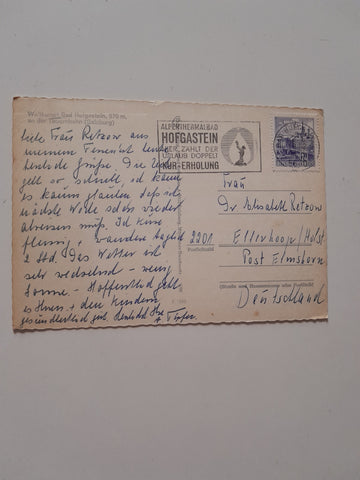 Weltkurort Bad Hofgastein, 870 m,
an der Tauernbahn (Salzburg)
ALPENTHERMALBAD
HOFGASTEIN
HIER ZÄHLT DER
URLAUB DOPPELT
KUR + ERHOLUNG
liebe Frau Retzow aus
meinem Ferienort sende
herzliche Grüße. Die Zeit
geht so schnell, ich kann
es kaum glauben daß ich
nächste Woche schon wieder
abreisen muß. Ich kure
fleißig + wandere täglich
2 Std. Das Wetter ist
sehr wechselnd - wenig
Sonne - Hoffentlich geht
es Ihnen + den Kindern
gesundheitlich gut. herzlichst Ihre
Frau
Dr. Elisabeth Retzow
2201 Ellerhoop/Holst
Postleitzahl
Post Elmshorn
(Straße und Hausnummer oder Postfach)
Deutschland